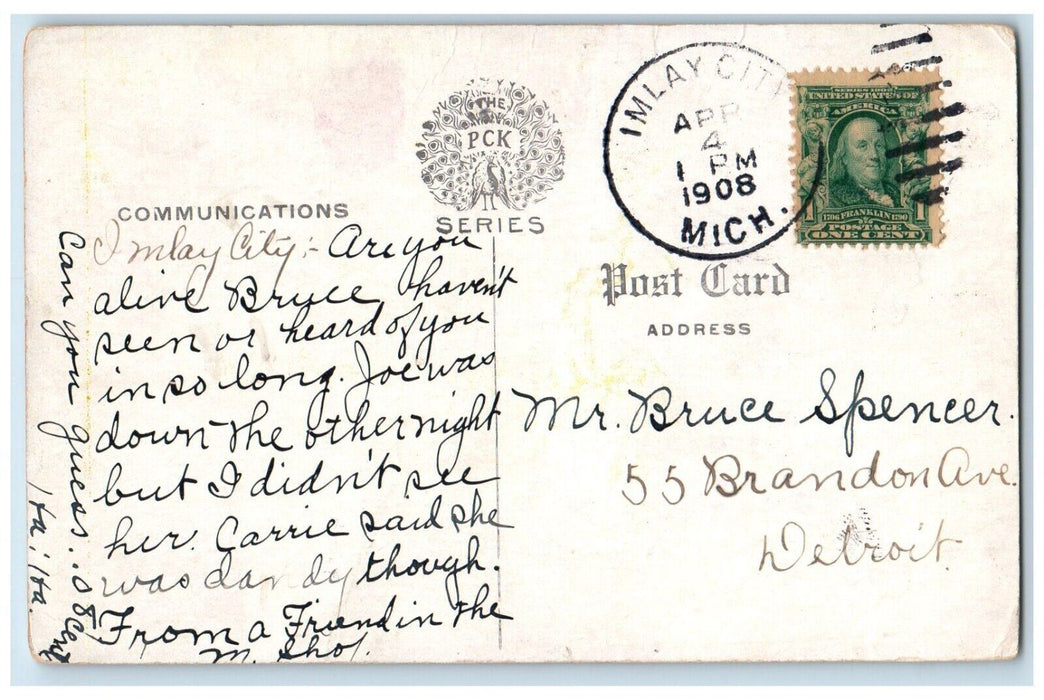 THE
PCK
SERIES
COMMUNICATIONS
Imlay City:- Are you
alive Bruce, haven't
seen or heard of you
in so long. Joe was
down the other night
but I didn't see
her. Carrie said she
was dandy though.
From a Friend in the
M. Sho.
Can you guess.
Ha! Ha.
IMLAY CITY
APR
4
1 PM
1908
MICH.
SERIES 1902
UNITED STATES OF
AMERICA
1706 FRANKLIN 1790
1 1
POSTAGE
ONE CENT
Post Card
ADDRESS
Mr. Bruce Spencer.
55 Brandon Ave.
Detroit.